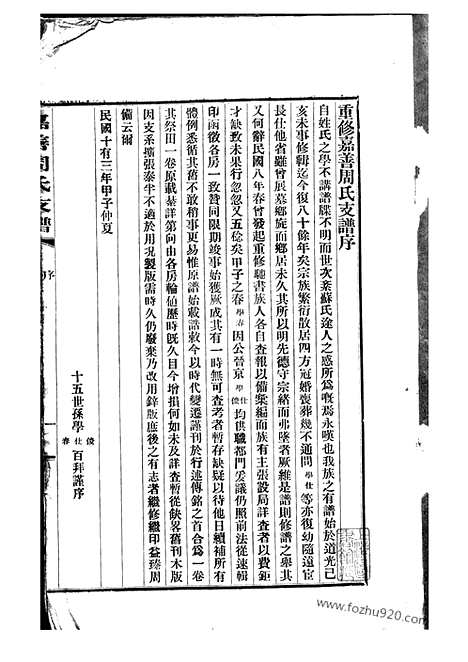 重修嘉善周氏支譜序
自姓氏之學不講譜牒不明而世次紊蘇氏途人之惑所爲嘅焉永嘆也我族之有譜始於道光己
亥未事修輯迄今復八十餘年矣宗族繁衍散居四方冠婚喪葬幾不通問學仕等亦復幼隨宦
長仕他省雖曾展墓鄉旋而鄉居未久其所以明先德守宗緒而弗墜者厥維是譜則修譜之舉其
又何辭民國八年春曾發起重修馳書族人各自查報以備彙編而族有主張設局詳查者以費鉅
才缺致未果行忽忽又五稔矣甲子之春學春因公晉京學仕儍均供職都門爰議仍照前法從速輯
印函徵各房一致贊同限期竣事始獲厥成其有一時無可查考者暫存缺疑以待他日續補所有
體例悉循其舊不敢稍事更易惟原譜始載誥敕今以時代變遷謹刊於行述傳銘之首合爲一卷
其祭田一卷原載綦詳第向由各房輪值歷時旣久目今增損何如未及詳查暫從飫畧舊刊木版
因支系擴張泰半不適於用况製版需時久仍廢棄乃改用鋅版庶後之有志者繼修繼印益臻周
備云爾
民國十有三年甲子仲夏
十五世孫學儍仕春百拜謹序
嘉善周氏支譜
序
www.fozhu920.com